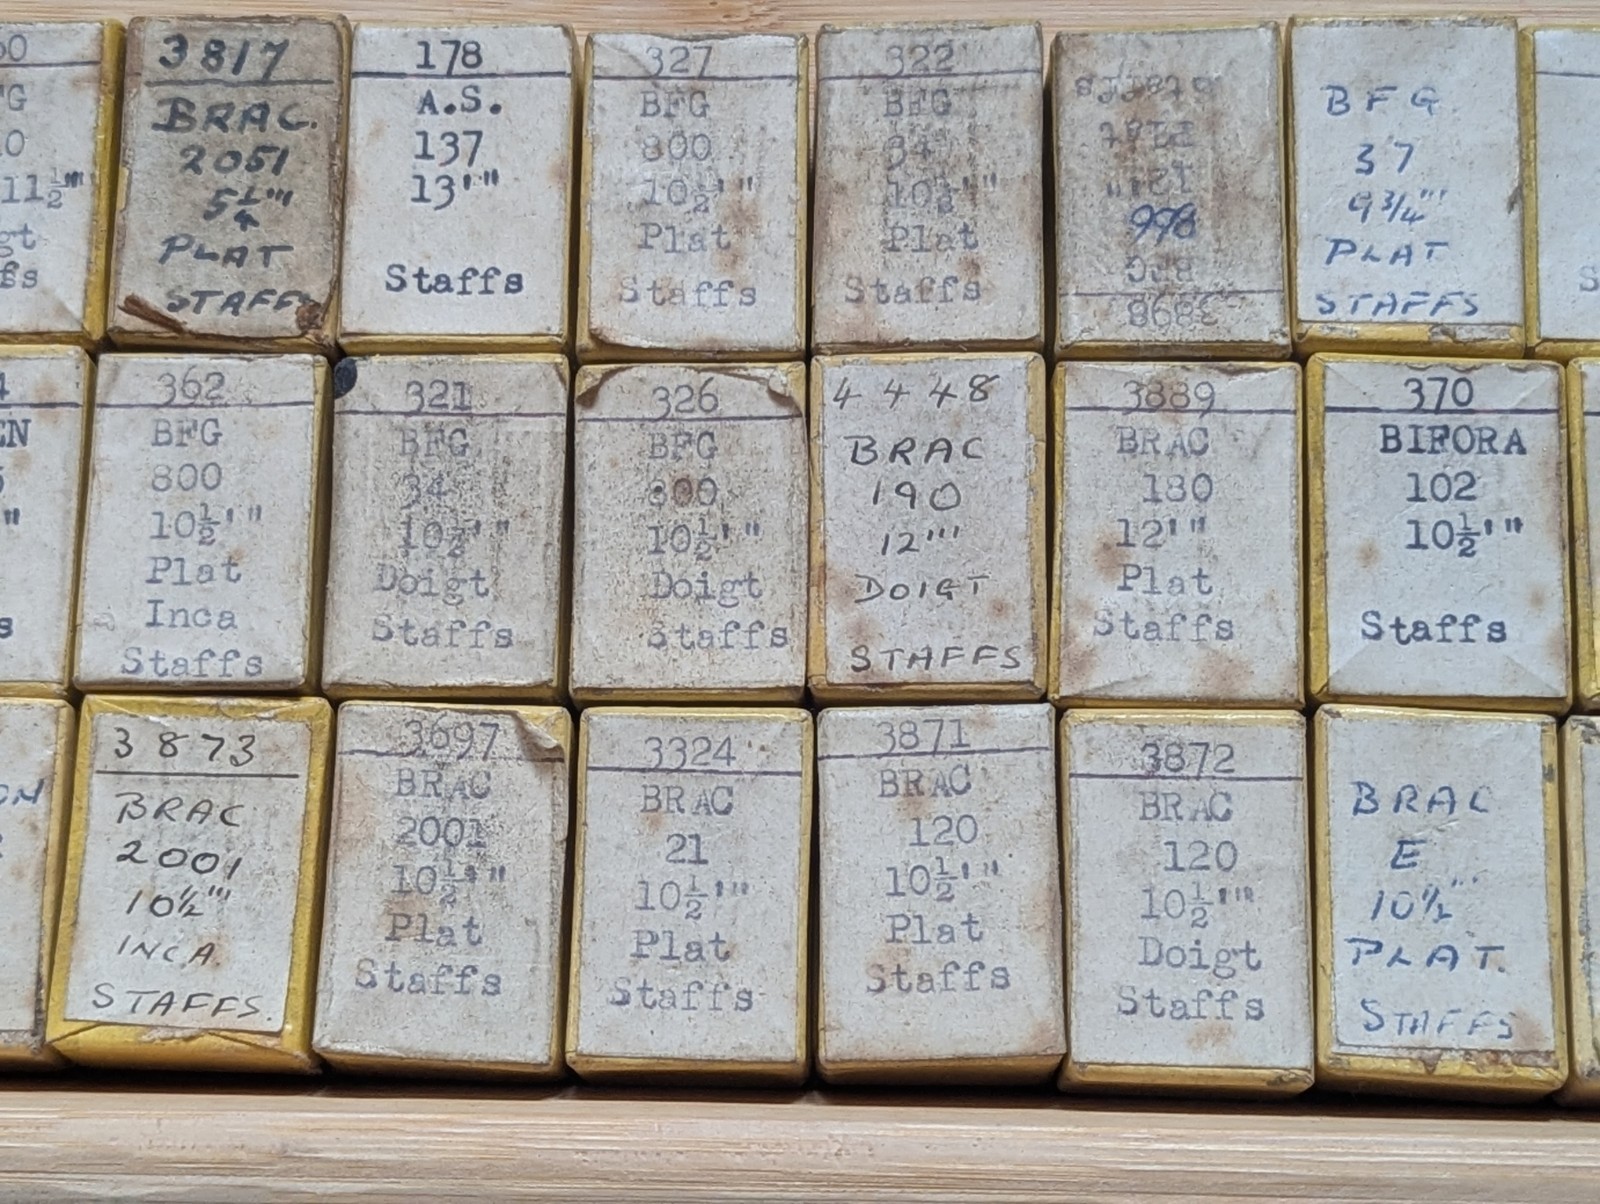 3817
BRAC.
2051
5¼'''
PLAT
STAFFS
178
A.S.
137
13'''
Staffs
327
BFG
800
10½'''
Plat
Staffs
322
BFG
34
10½'''
Plat
Staffs
3898
BFG
866
12½'''
Plat
Staffs
BFG
37
9¾'''
PLAT
STAFFS
11½'''
362
BFG
800
10½'''
Plat
Inca
Staffs
321
BFG
34
10½'''
Doigt
Staffs
326
BFG
800
10½'''
Doigt
Staffs
4448
BRAC
190
12'''
DOIGT
STAFFS
3889
BRAC
180
12'''
Plat
Staffs
370
BIFORA
102
10½'''
Staffs
3873
BRAC
2001
10½'''
INCA.
STAFFS.
3697
BRAC
2001
10½'''
Plat
Staffs
3324
BRAC
21
10½'''
Plat
Staffs
3871
BRAC
120
10½'''
Plat
Staffs
3872
BRAC
120
10½'''
Doigt
Staffs
BRAC
E
10½'''
PLAT.
STAFFS